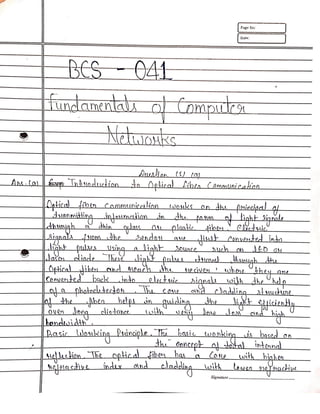 Page No.
Date:
BCS - 041
Fundamentals of Computer
Networks
Question (1) (a)
Ans. (a) Introduction to Optical Fiber Communication
Optical fiber communication works on the principal of
transmitting information in the form of light signals
through a thin glass or plastic fiber. Electric
signals from the sender are first converted into
light pulses using a light source such as LED or
laser diode. These light pulses travel through the
Optical fiber and reach the reciver, where they are
converted back into electric signals with the help
of a photodetector. The core and cladding structure
of the fiber helps in guiding the light efficiently
over long distance with very low loss and high
bandwidth.
Basic Working Principle. The basic working is based on
the concept of total internal
reflection. The optical fiber has a core with higher
refractive index and cladding with lower refractive
Signature